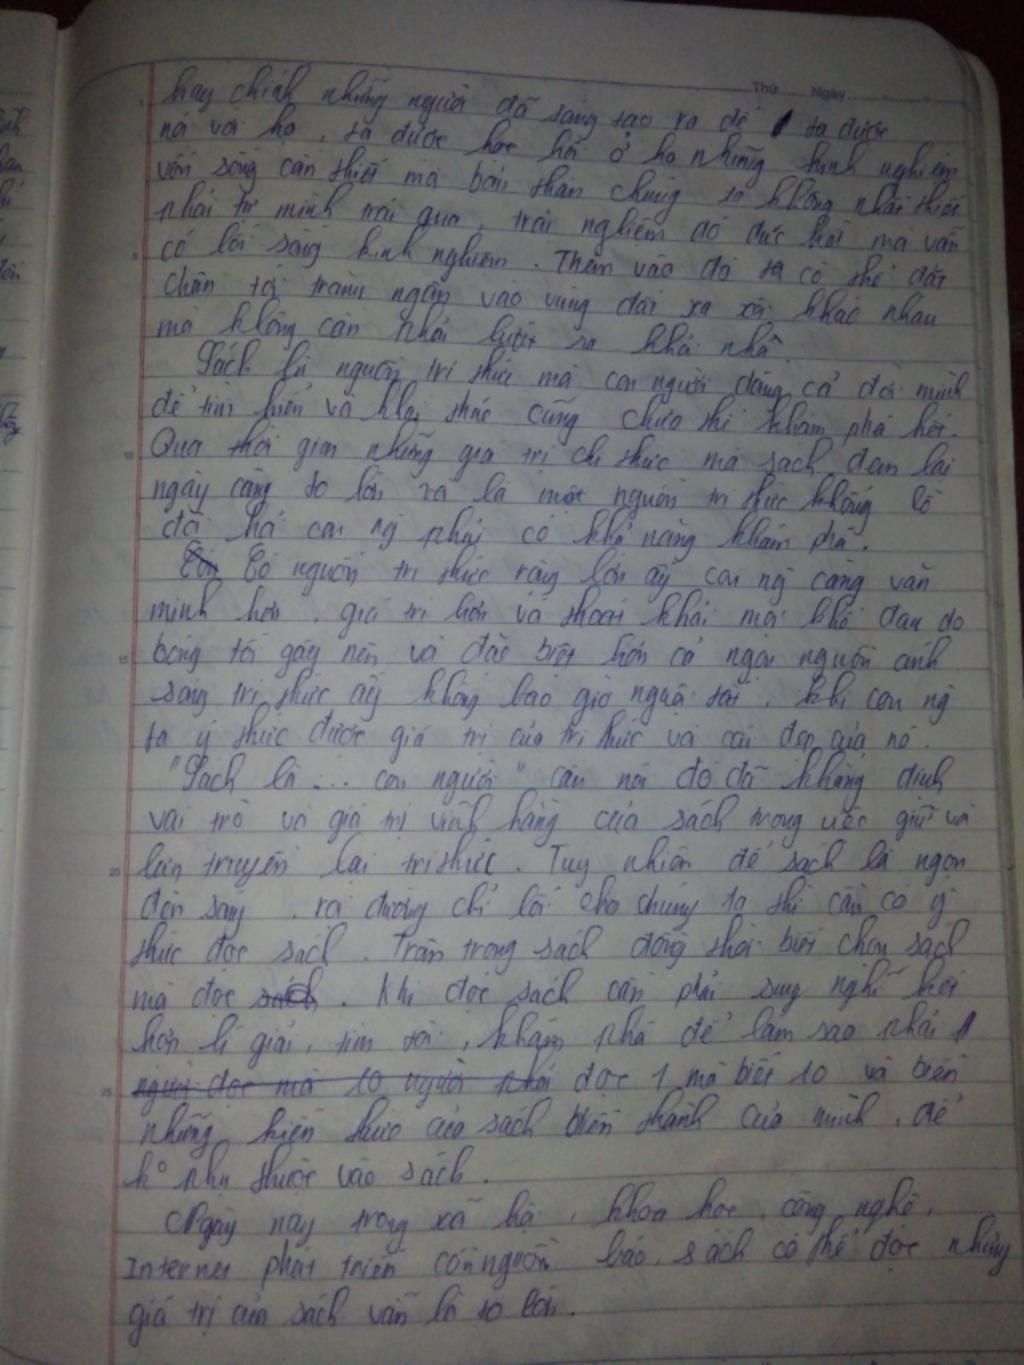 Thứ ..... Ngày ..............
hay chính những người đã sáng tạo ra để ta được
nói với họ, ta được học hỏi ở họ những kinh nghiệm
vốn sống cần thiết mà bản thân chúng ta không nhất thiết
phải tự mình trải qua, trải nghiệm đó đúc kết mà vẫn
có lối sống kinh nghiệm. Thêm vào đó ta có thể đặt
chân tới trăm ngàn vào vùng đất xa xôi khác nhau
mà không cần phải bước ra khỏi nhà.
Sách là nguồn tri thức mà con người dùng cả đời mình
để tìm hiểu và khai thác cũng chưa thể khám phá hết.
Qua thời gian những giá trị tri thức mà sách đem lại
ngày càng to lớn và là một nguồn tri thức khổng lồ
đòi hỏi con ng phải có khả năng khám phá.
Có nguồn tri thức rộng lớn ấy con ng càng văn
minh hơn, giá trị hơn và thoát khỏi mọi khổ đau do
bóng tối gây nên và đặc biệt hơn cả ngọn nguồn ánh
sáng tri thức ấy không bao giờ nguội tắt, khi con ng
ta ý thức được giá trị của tri thức và cái đẹp của nó.
"Sách là ... con người" câu nói đó đã khẳng định
vai trò và giá trị vĩnh hằng của sách trong việc giữ và
lưu truyền lại tri thức. Tuy nhiên để sách là ngọn
đèn sáng, rọi đường chỉ lối cho chúng ta thì cần có ý
thức đọc sách. Trân trọng sách đồng thời biết chọn sách
mà đọc sách. Khi đọc sách cần phải suy nghĩ kĩ
hơn lí giải, tìm tòi, khám phá để làm sao phải
người đọc mà 10 người phải đọc 1 mà biết 10 và biến
những kiến thức của sách biến thành của mình, để
k° phụ thuộc vào sách.
Ngày nay trong xã hội, khoa học, công nghệ,
Internet phát triển còn nguồn báo, sách có thể đọc nhưng
giá trị của sách vẫn là to lớn.